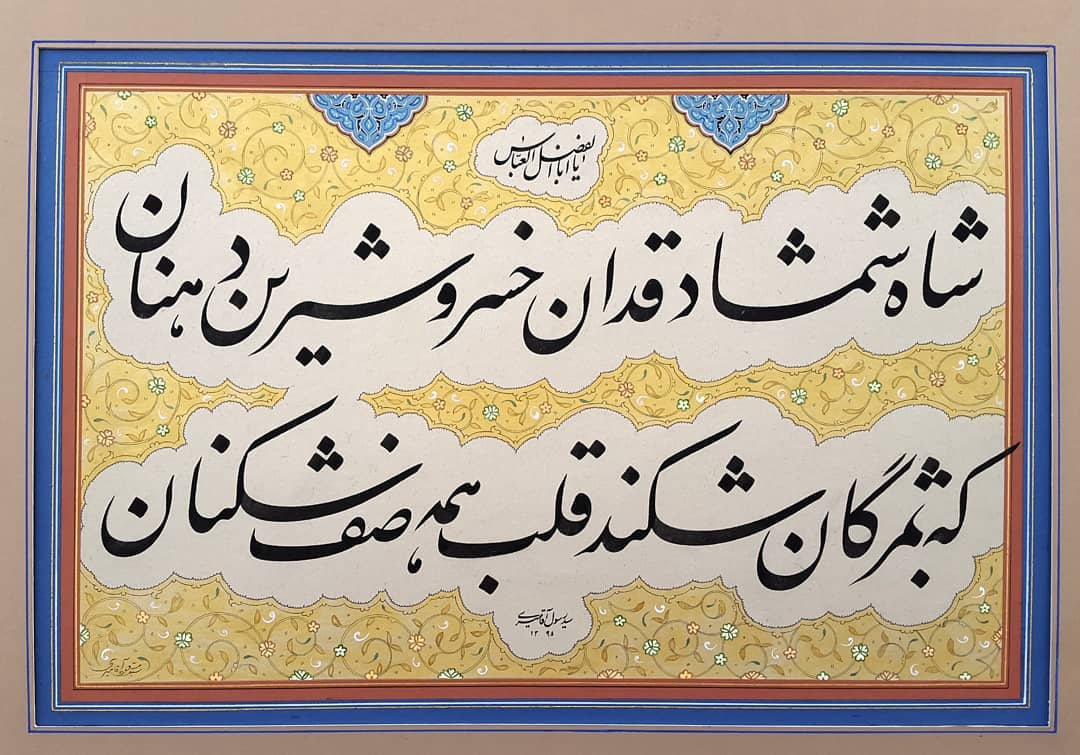 یا اباالفضل العباس
شاه شمشاد قدان خسرو شیرین دهنان
که بمژگان شکند قلب همه صف شکنان
سید رسول آقامیری
۱۳۹۵